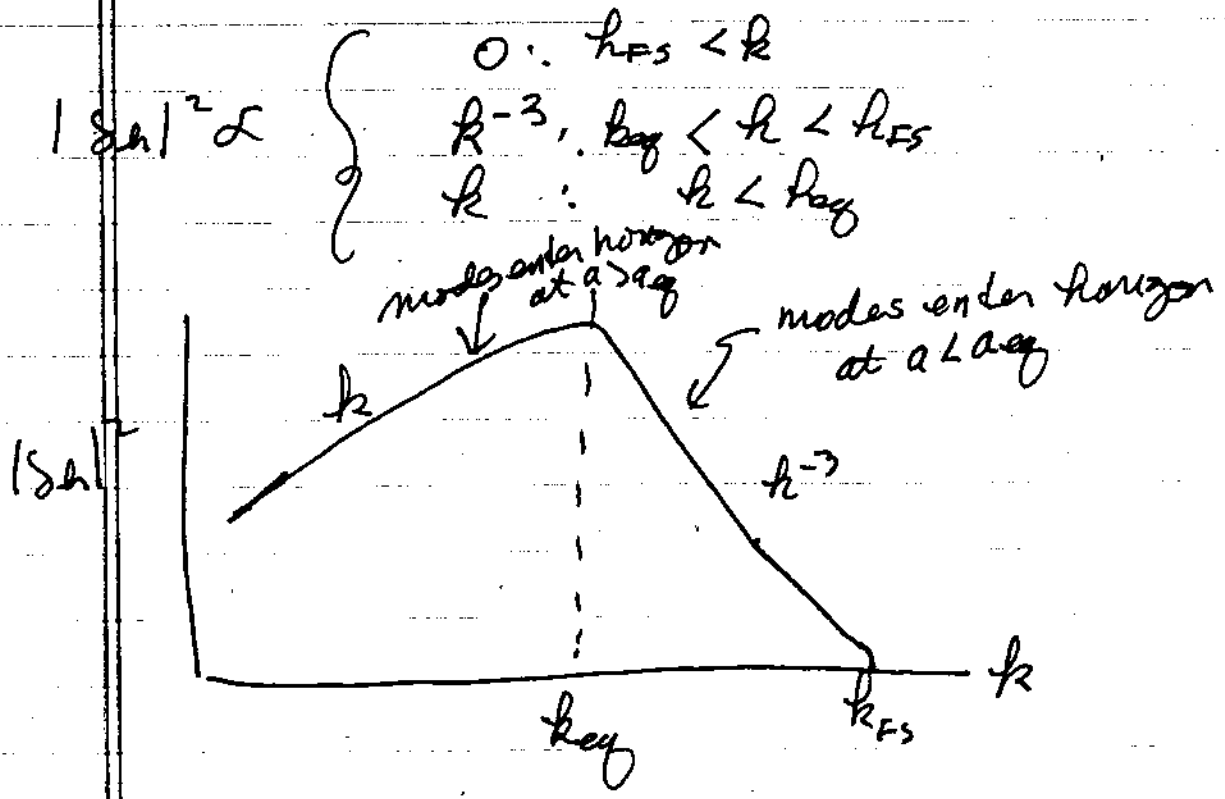 |δk|² ∝ { 0 : k_FS < k
k⁻³ : k_eq < k < k_FS
k : k < k_eq
modes enter horizon
at a > a_eq
modes enter horizon
at a < a_eq
k
|δk|²
k⁻³
k
k_eq
k_FS